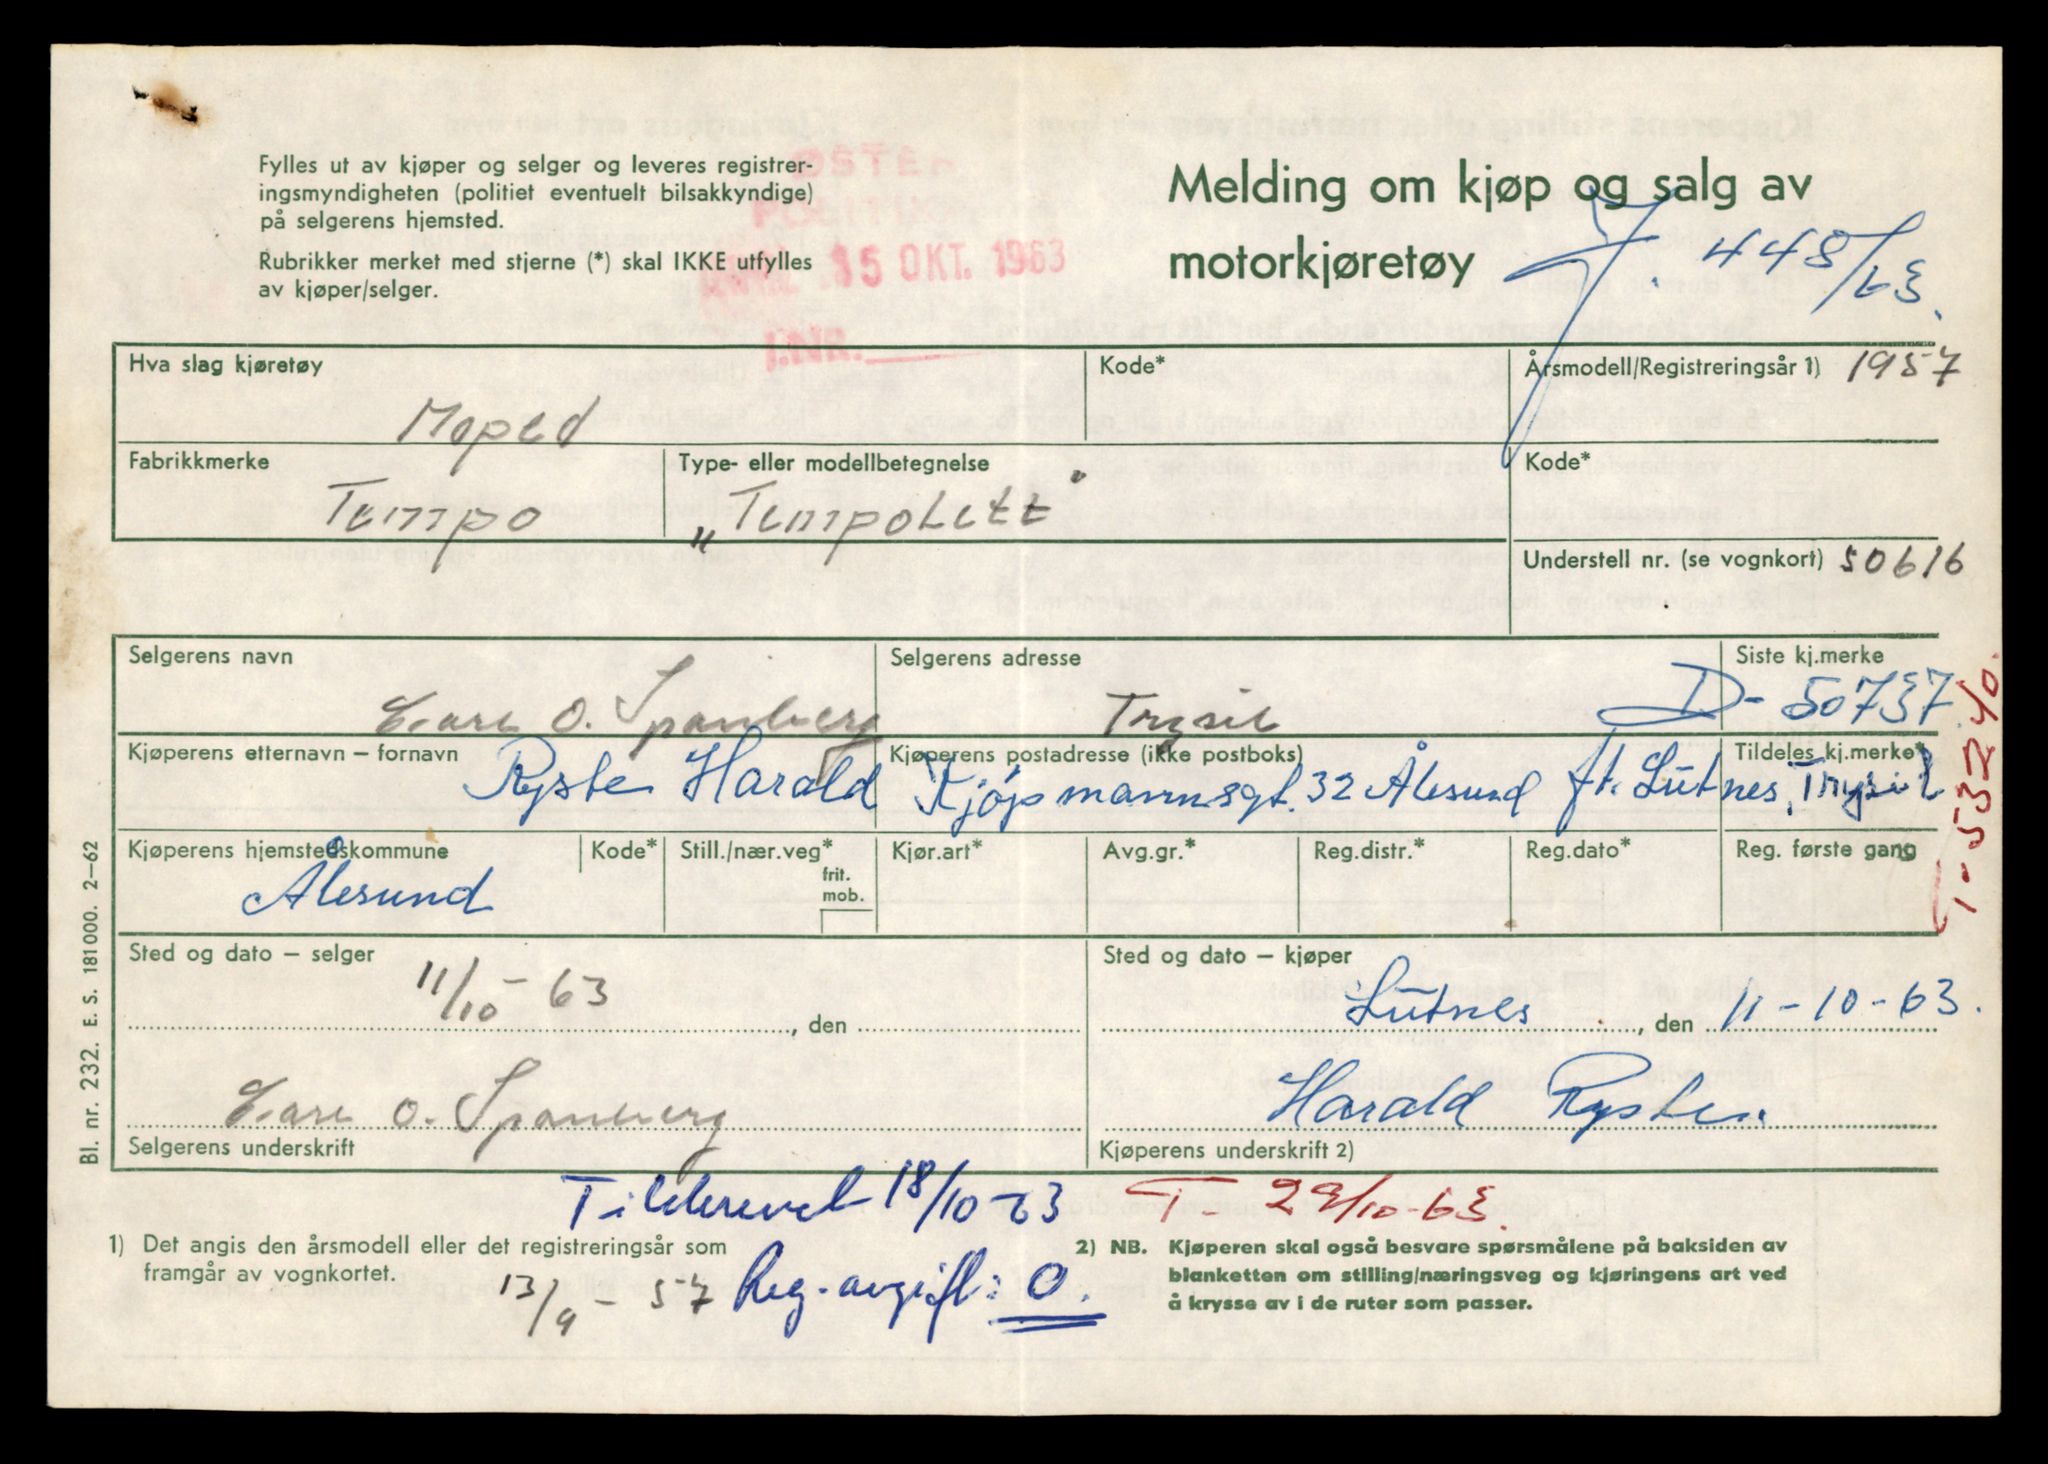 Fylles ut av kjøper og selger og leveres registrer-
ingsmyndigheten (politiet eventuelt bilsakkyndige)
på selgerens hjemsted.
Rubrikker merket med stjerne (*) skal IKKE utfylles
av kjøper/selger.
ØSTER
15 OKT. 1963
J.NR.
Melding om kjøp og salg av
motorkjøretøy
J. 448/63.
Hva slag kjøretøy
Moped
Kode*
Årsmodell/Registreringsår 1) 1957
Fabrikkmerke
Tempo
Type- eller modellbetegnelse
„TempoLett"
Kode*
Understell nr. (se vognkort) 50616
Selgerens navn
O. Spanberg
Selgerens adresse
Trysil
Siste kj.merke
D-50737
Kjøperens etternavn – fornavn
Ryste Harald
Kjøperens postadresse (ikke postboks)
Kjøpmannsgt. 32 Ålesund ft. Lutnes, Trysil
Tildeles kj.merke*
T-53240.
Kjøperens hjemstedskommune
Ålesund
Kode*
Still./nær.veg*
frit.
mob.
Kjør.art*
Avg.gr.*
Reg.distr.*
Reg.dato*
Reg. første gang
Sted og dato – selger
11/10-63
, den
Sted og dato – kjøper
Lutnes, den 11-10-63.
O. Spanberg
Selgerens underskrift
Harald Ryste.
Kjøperens underskrift 2)
Bl. nr. 232. E. S. 181000. 2–62
18/10-63
T- 29/10-63.
1) Det angis den årsmodell eller det registreringsår som
framgår av vognkortet.
13/9-57
Reg.avgift: 0.
2) NB. Kjøperen skal også besvare spørsmålene på baksiden av
blanketten om stilling/næringsveg og kjøringens art ved
å krysse av i de ruter som passer.